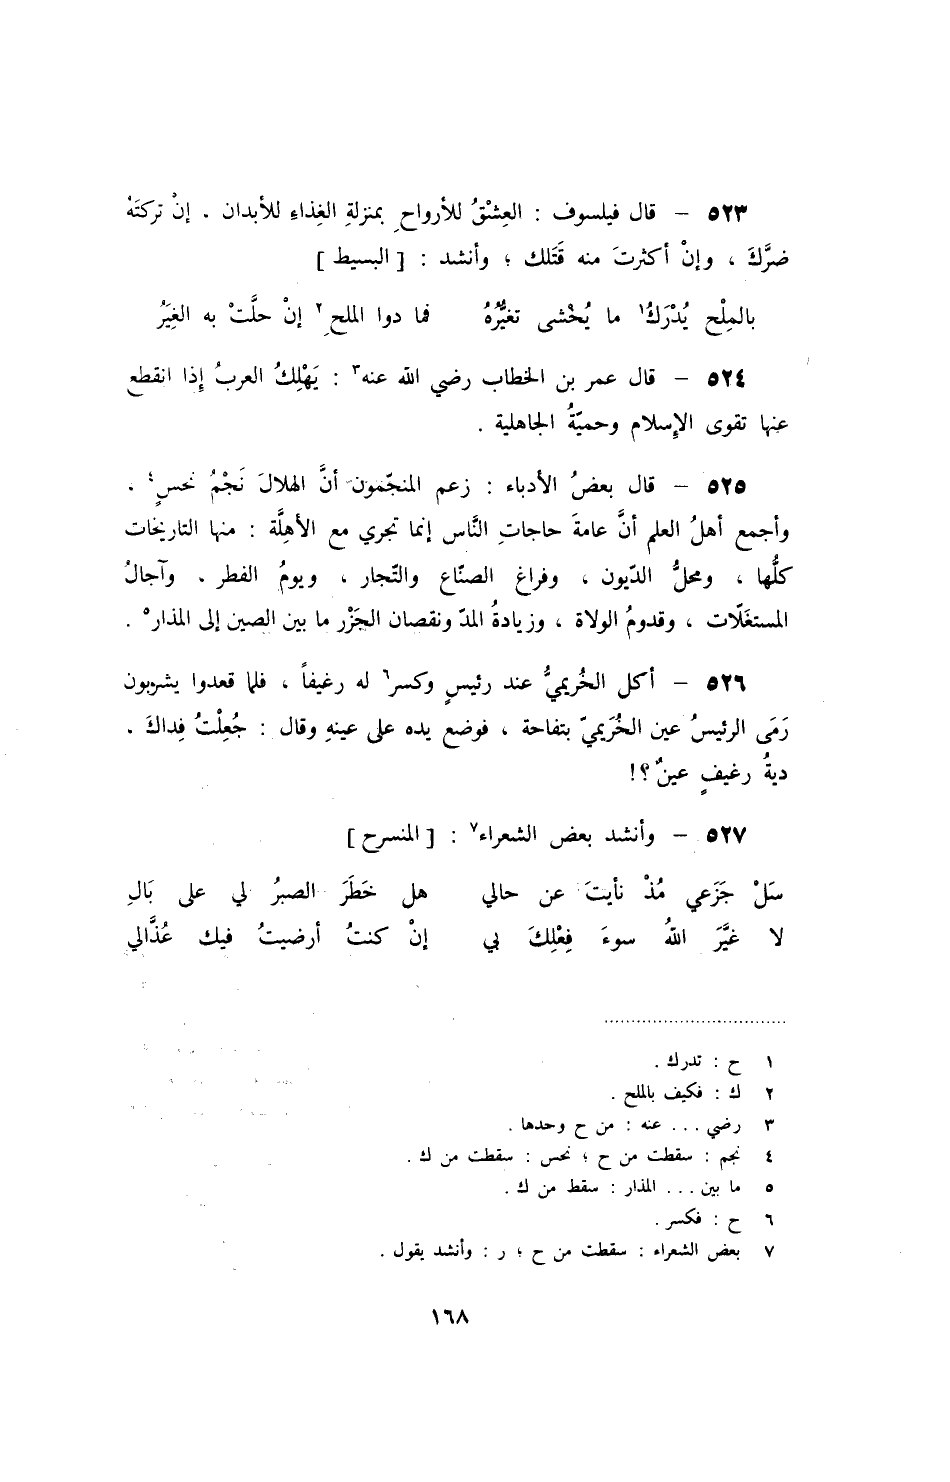 ٥٢٣ – قال فيلسوف : العِشْقُ للأرواحِ بمنزلةِ الغِذاءِ للأبدان . إنْ تركتَهْ
ضرَّكَ ، وإنْ أكثرتَ منه قَتَلك ؛ وأنشد : [ البسيط ]
بالمِلْح يُدْرَكُ١ ما يُخْشى تغيُّرُهُ فما دوا الملحِ٢ إنْ حلَّتْ به الغِيَرُ
٥٢٤ – قال عمر بن الخطاب رضي الله عنه٣ : يَهْلِكُ العربُ إذا انقطع
عنها تقوى الإسلام وحميّةُ الجاهلية .
٥٢٥ – قال بعضُ الأدباء : زعم المنجّمون أنَّ الهلالَ نَجْمُ نحسٍ٤ .
وأجمع أهلُ العلم أنَّ عامةَ حاجاتِ النَّاس إنما تجري مع الأهلَّة : منها التاريخات
كلُّها ، ومحلُّ الدّيون ، وفراغ الصنّاع والتّجار ، ويومُ الفطر . وآجالُ
المستغَلّات ، وقدومُ الولاة ، وزيادةُ المدّ ونقصان الجَزْر ما بين الصين إلى المذار٥ .
٥٢٦ – أكل الخُريميُّ عند رئيسٍ وكسر٦ له رغيفاً ، فلما قعدوا يشربون
رَمَى الرئيسُ عين الخُرَيميّ بتفاحة ، فوضع يده على عينهِ وقال : جُعِلْتُ فِداكَ .
ديةُ رغيفٍ عينٌ ؟!
٥٢٧ – وأنشد بعض الشعراء٧ : [ المنسرح ]
سَلْ جَزَعي مُذْ نأيتَ عن حالي هل خَطَرَ الصبرُ لي على بَالِ
لا غيَّرَ اللهُ سوءَ فِعْلِكَ بي إنْ كنتُ أرضيتُ فيك عُذَّالي
١ ح : تدرك .
٢ ك : فكيف بالملح .
٣ رضي ... عنه : من ح وحدها .
٤ نجم : سقطت من ح ؛ نحس : سقطت من ك .
٥ ما بين ... المذار : سقط من ك .
٦ ح : فكسر .
٧ بعض الشعراء : سقطت من ح ؛ ر : وأنشد يقول .
١٦٨